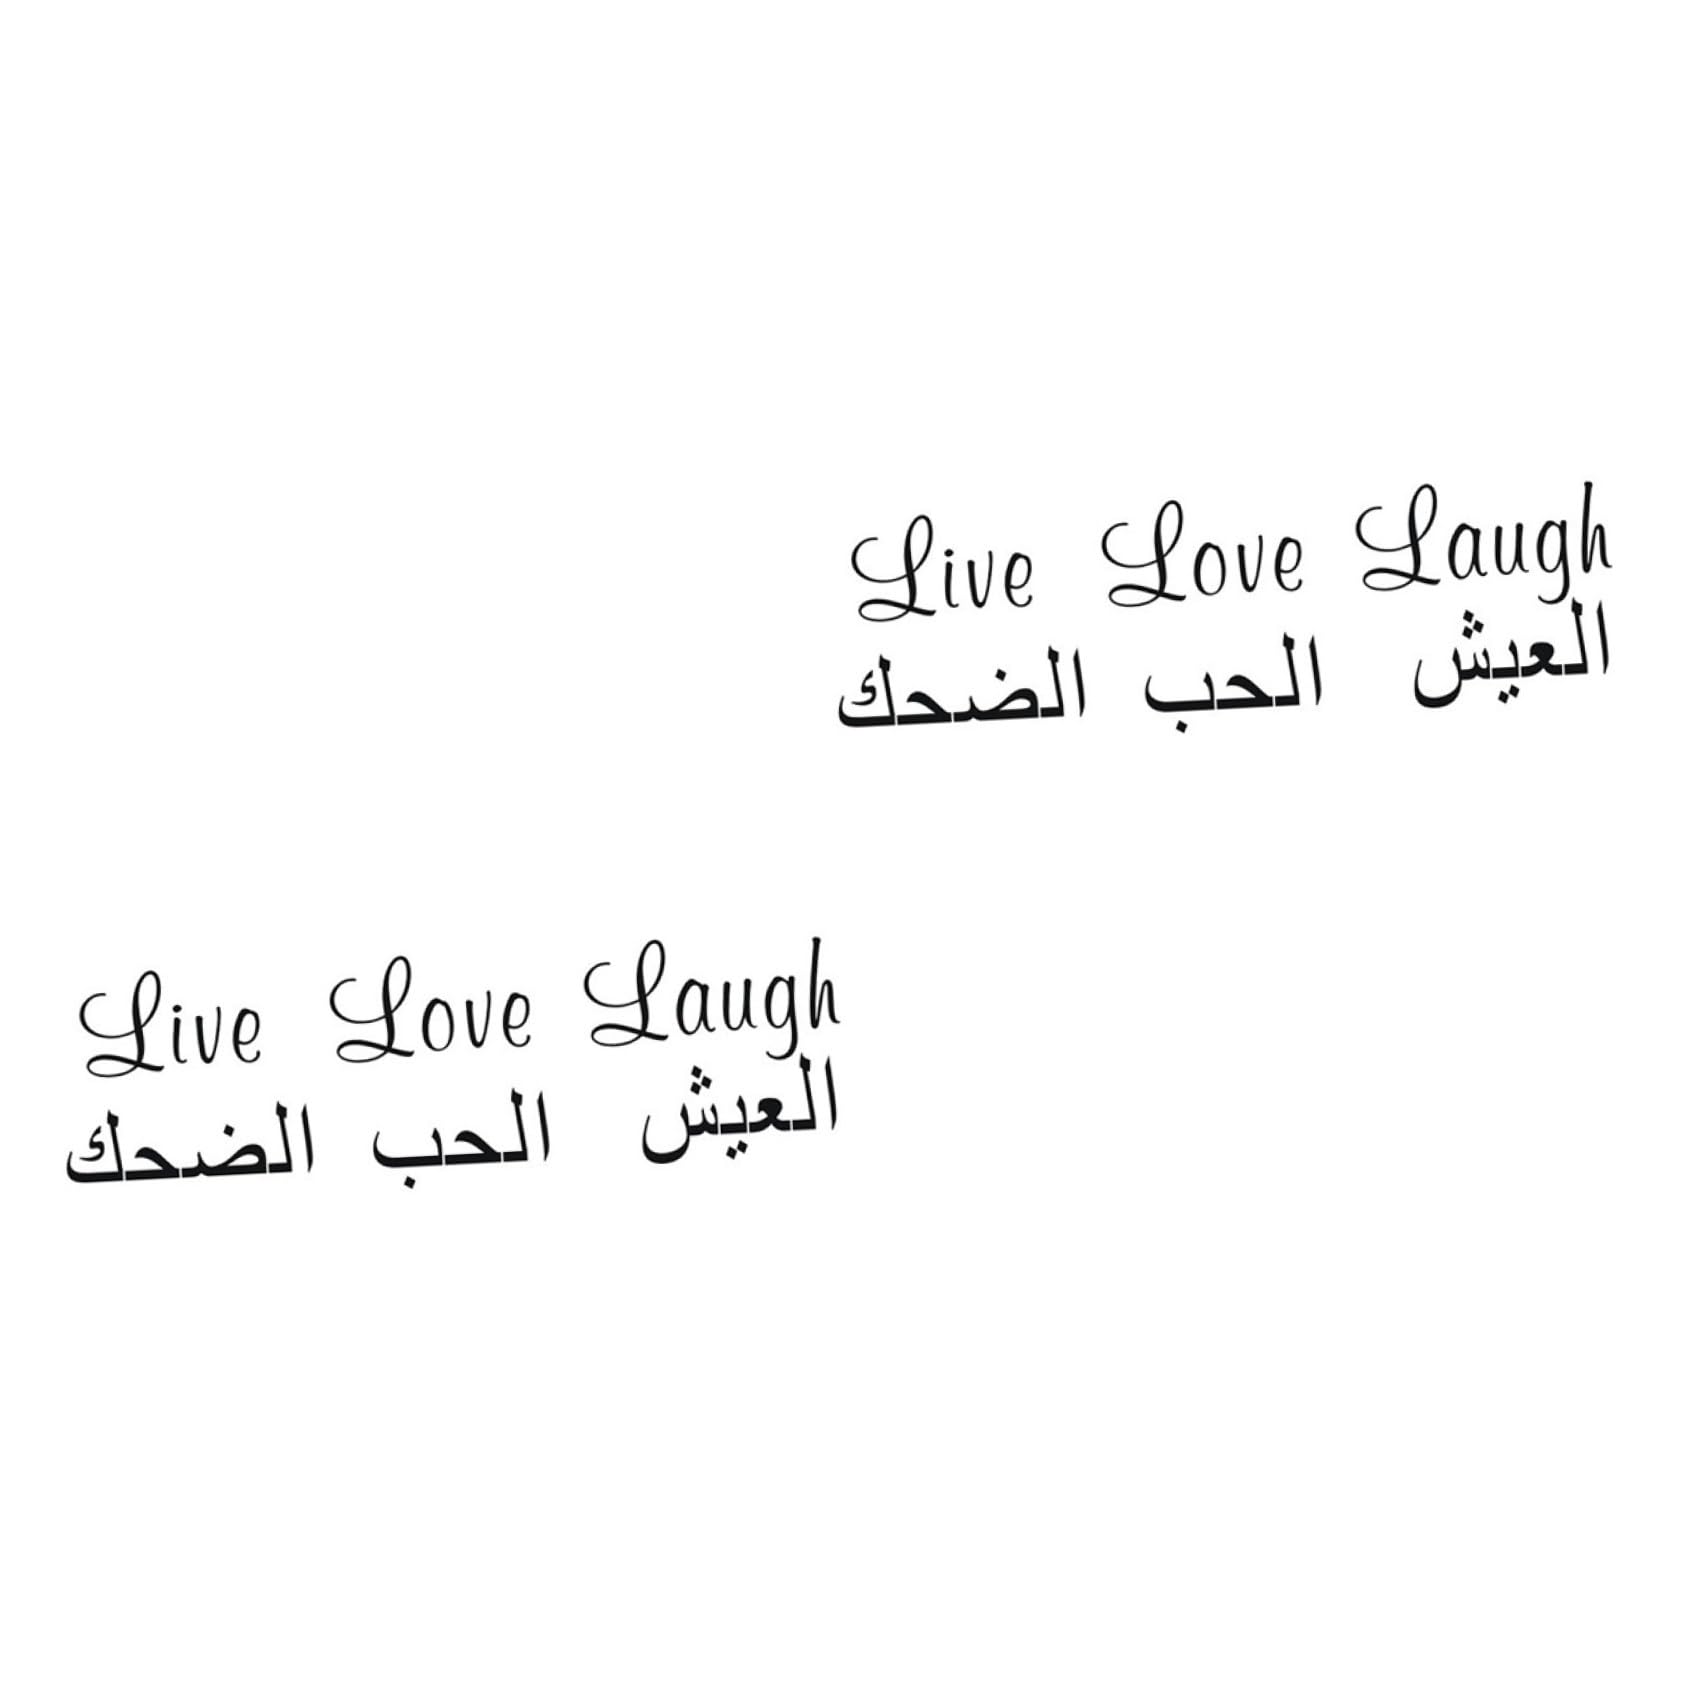 Live Love Laugh
العيش الحب الضحك
Live Love Laugh
العيش الحب الضحك